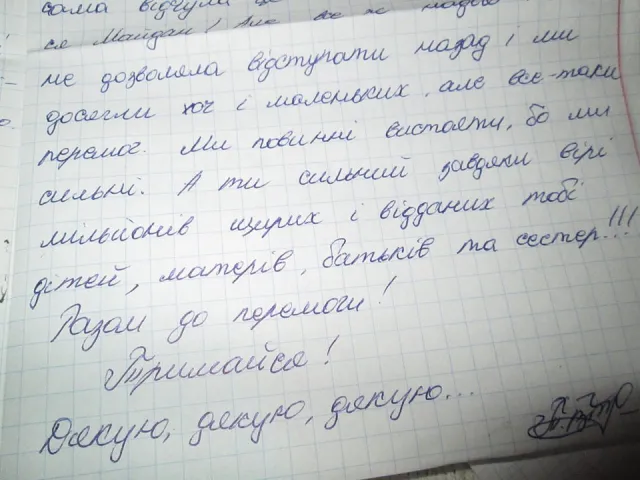 сама відчула
ся Майдан! Але все ж надія
не дозволяла відступати назад і ми
досягли хоч і маленьких, але все-таки
перемог. Ми повинні вистояти, бо ми
сильні. А ти сильний завдяки вірі
мільйонів щирих і відданих тобі
дітей, матерів, батьків та сестер!!!
Разом до перемоги!
Тримайся!
Дякую, дякую, дякую...